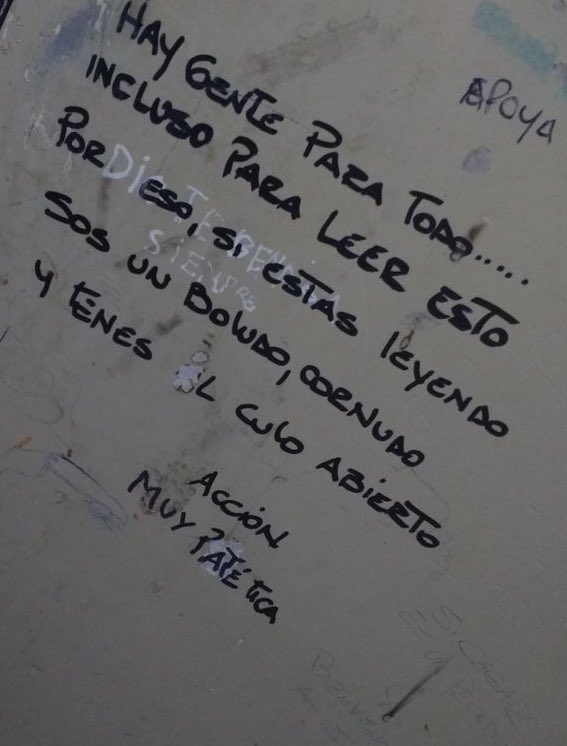 HAY GENTE PARA TODO.....
INCLUSO PARA LEER ESTO
POR ESO, SI ESTAS LEYENDO
SOS UN BOLUDO, CORNUDO
Y TENES EL CULO ABIERTO
ACCIÓN
MUY PATÉTICA
APOYA
DIOS TE BENDIGA
SIENPRE